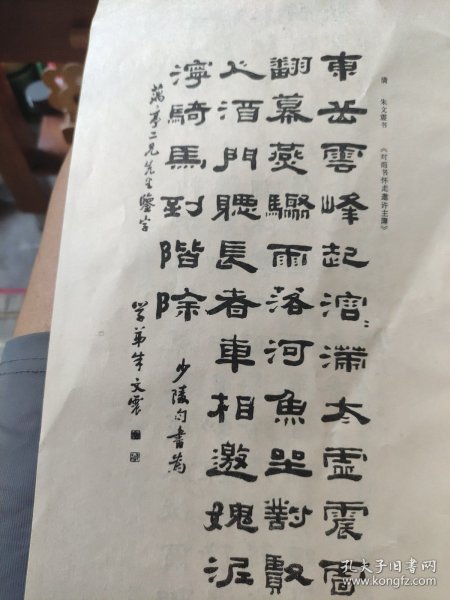 清 朱文震书 《对雨书怀走邀许主簿》
東岳雲峰起溶〻滿太虛震雷
翻幕燕驟雨落河魚坐對賢
人酒門聽長者車相邀媿泥
濘騎馬到階除
少陵句書為
亭二兄先生鑒
學弟朱文震
孔夫子旧书网
www.kongfz.com